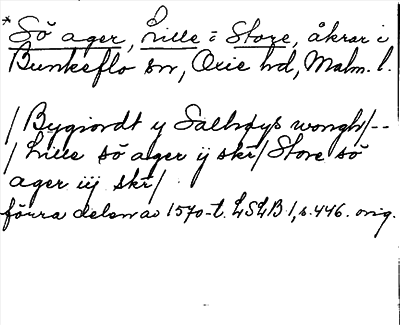 *Sö ager, Lille = Store, åkrar i
Bunkeflo sn, Oxie hd, Malm. l.
/ Bygiordt y Salbrdys wongh/--
/ Lille sö ager ÿ skr/ Store sö
ager iij skr/
förra delen av 1570-t. LSLB 1, s. 446. orig.